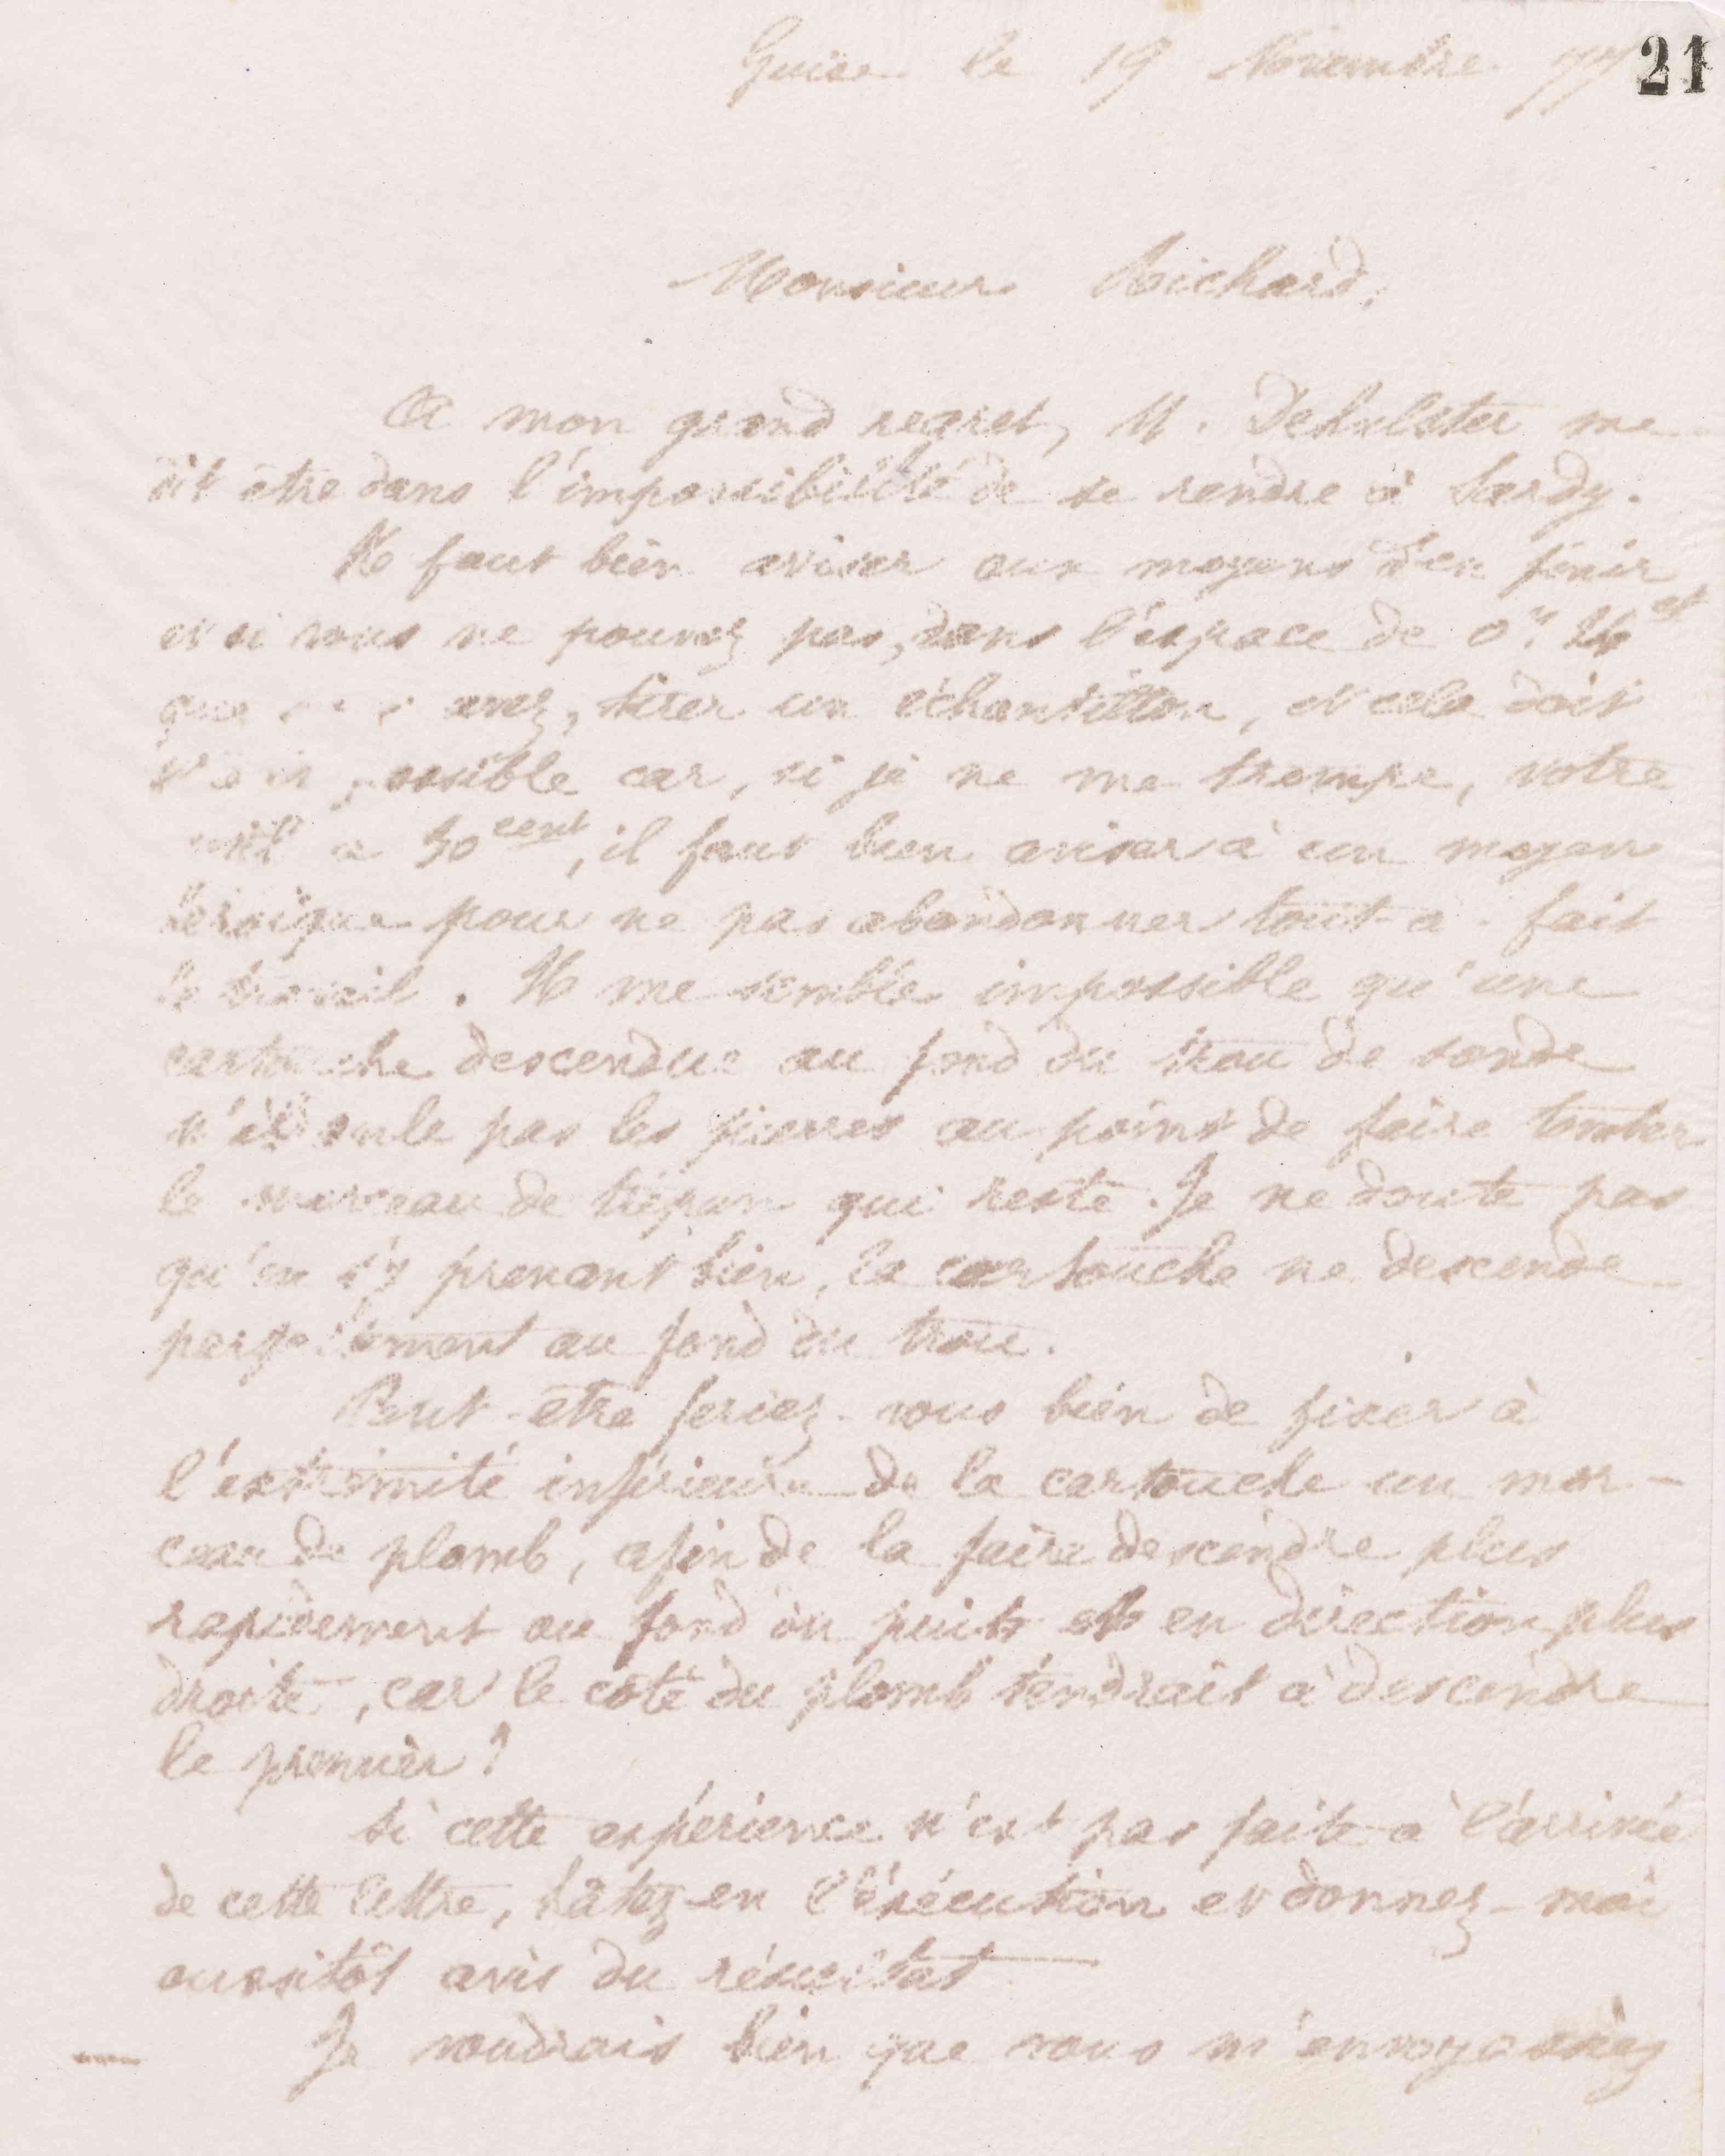 Guise le 19 Novembre 77
21
Monsieur Richard,
A mon grand regret, M. Dehulster me
dit être dans l'impossibilité de se rendre à Sardy.
Il faut bien aviser aux moyens d'en finir
et si vous ne pouvez pas, dans l'espace de 0m
que avez, tirer un échantillon, et cela doit
possible car, si je ne me trompe, votre
outil a 30 cent, il faut bien aviser à un moyen
héroïque pour ne pas abandonner tout-à-fait
le travail. Il me semble impossible qu'une
cartouche descendue au fond du trou de sonde
n'éboule pas les pierres au point de faire tomber
le morceau de trépan qui reste. Je ne doute pas
qu'en s'y prenant bien, la cartouche ne descende
parfaitement au fond du trou.
Peut-être feriez-vous bien de fixer à
l'extrémité inférieure de la cartouche un mor-
ceau de plomb, afin de la faire descendre plus
rapidement au fond du puits et en direction plus
droite, car le côté du plomb tendrait à descendre
le premier?
Si cette expérience n'est pas faite à l'arrivée
de cette lettre, hâtez-en l'exécution et donnez-moi
aussitôt avis du résultat
Je voudrais bien que vous m'envoyassiez